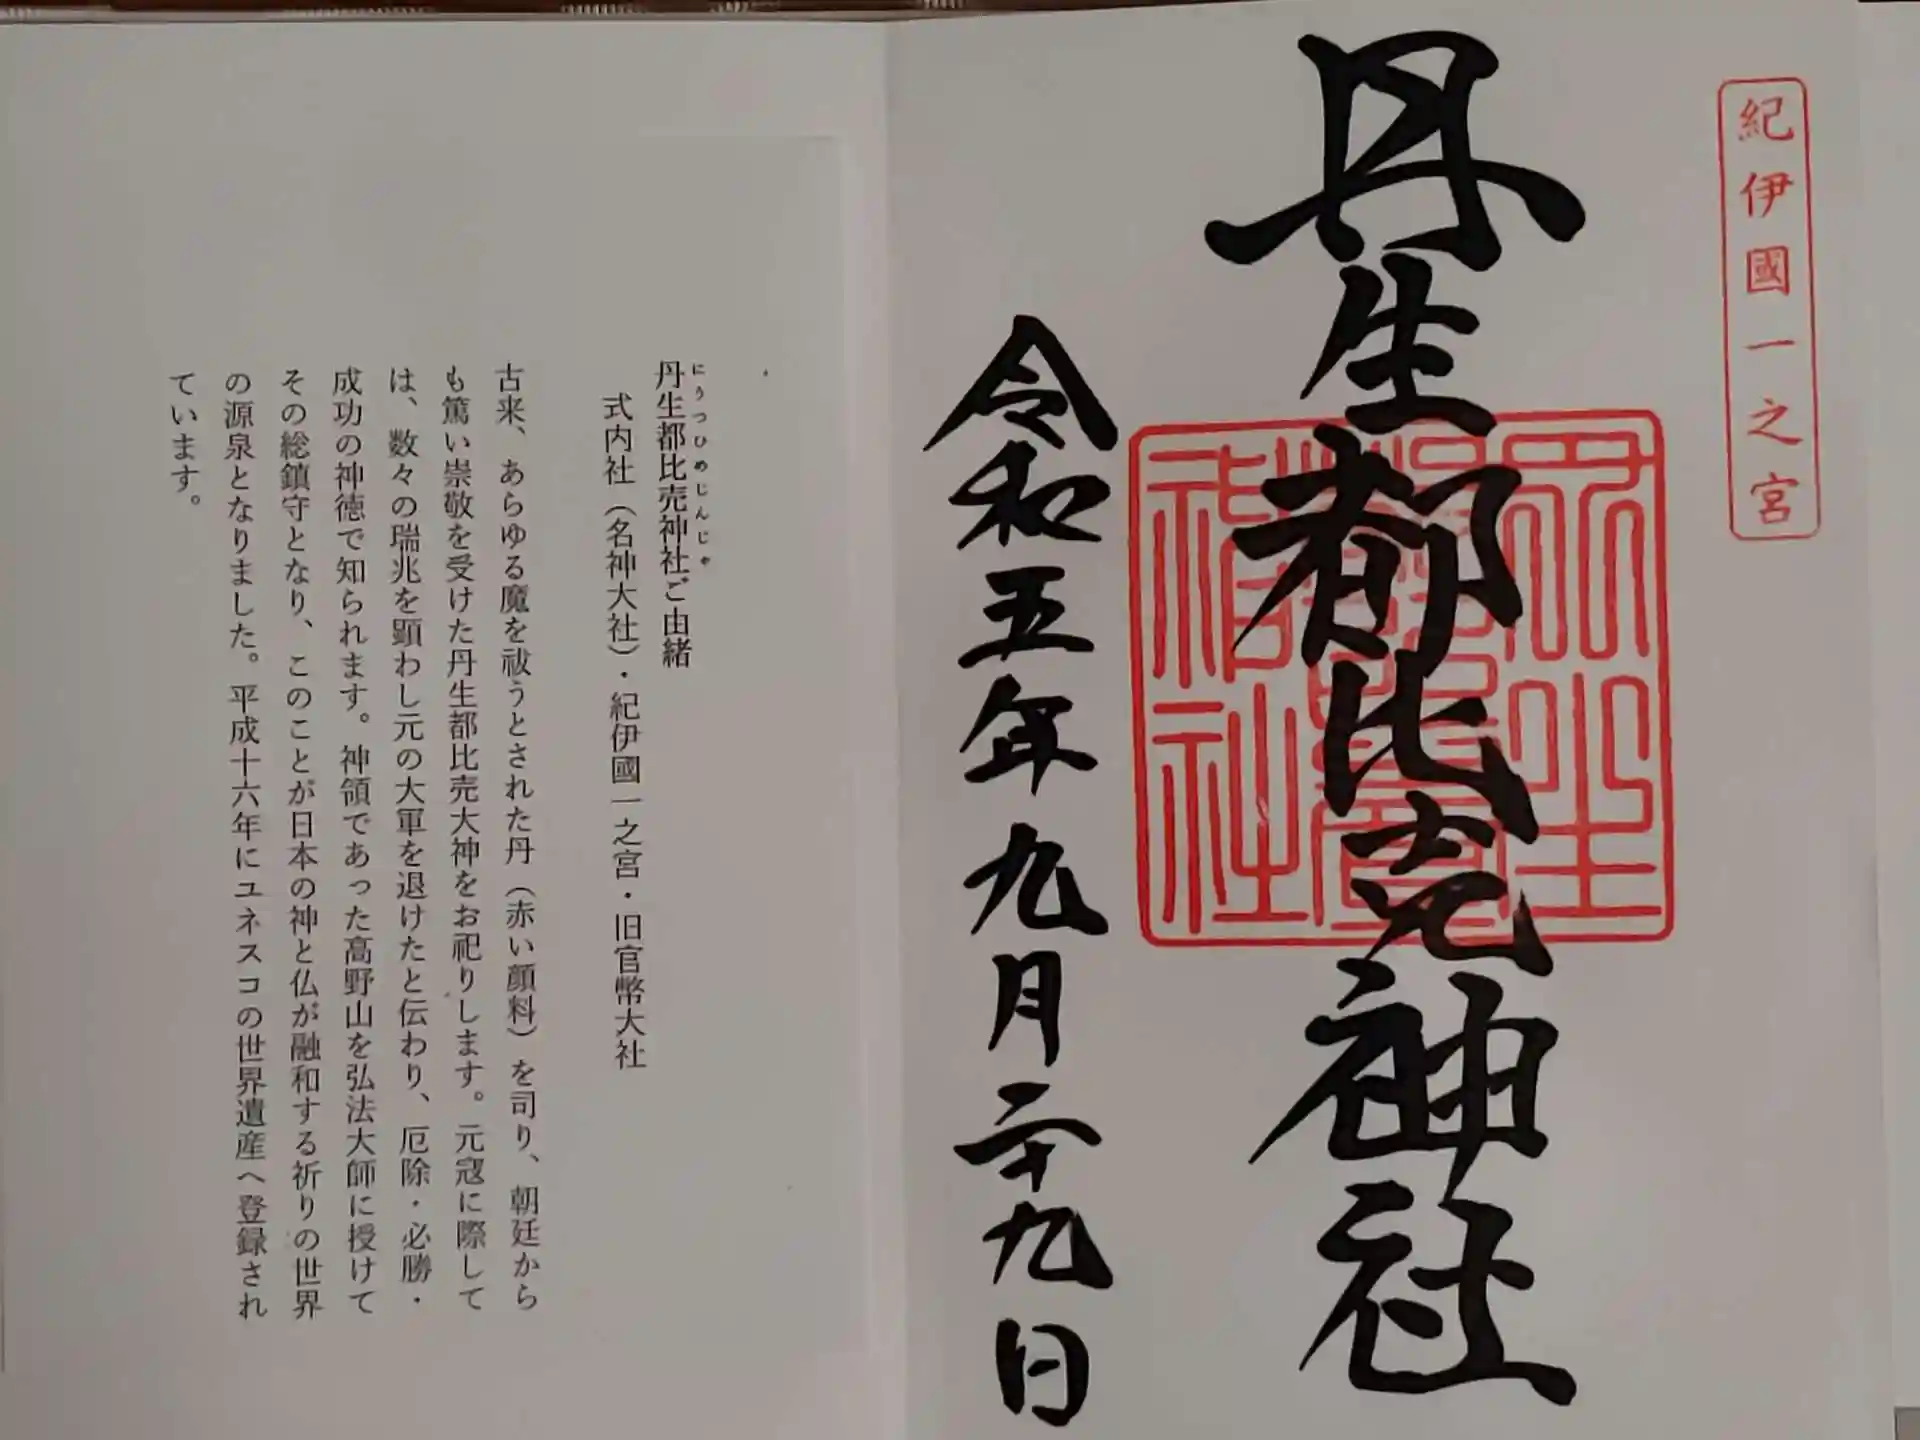 紀伊國一之宮
丹生都比売神社
令和五年九月二十九日
にうつひめじんじゃ
丹生都比売神社ご由緒
式内社（名神大社）・紀伊國一之宮・旧官幣大社
古来、あらゆる魔を祓うとされた丹（赤い顔料）を司り、朝廷から
も篤い崇敬を受けた丹生都比売大神をお祀りします。元寇に際して
は、数々の瑞兆を顕わし元の大軍を退けたと伝わり、厄除・必勝・
成功の神徳で知られます。神領であった高野山を弘法大師に授けて
その総鎮守となり、このことが日本の神と仏が融和する祈りの世界
の源泉となりました。平成十六年にユネスコの世界遺産へ登録され
ています。